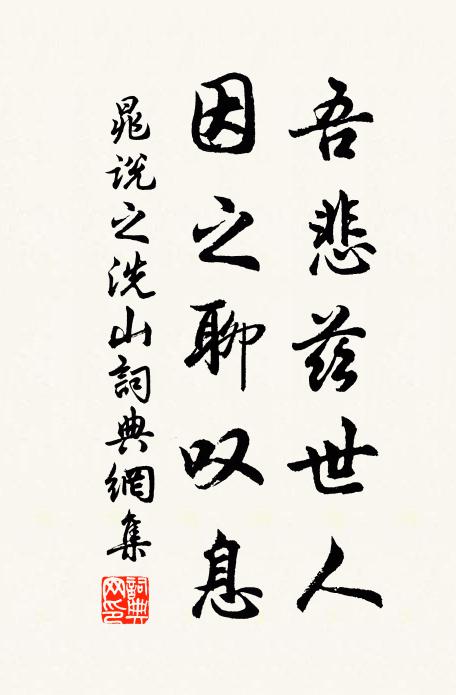 吾悲兹世人
因之聊叹息
晁说之洗山詞典網集
詞典網印